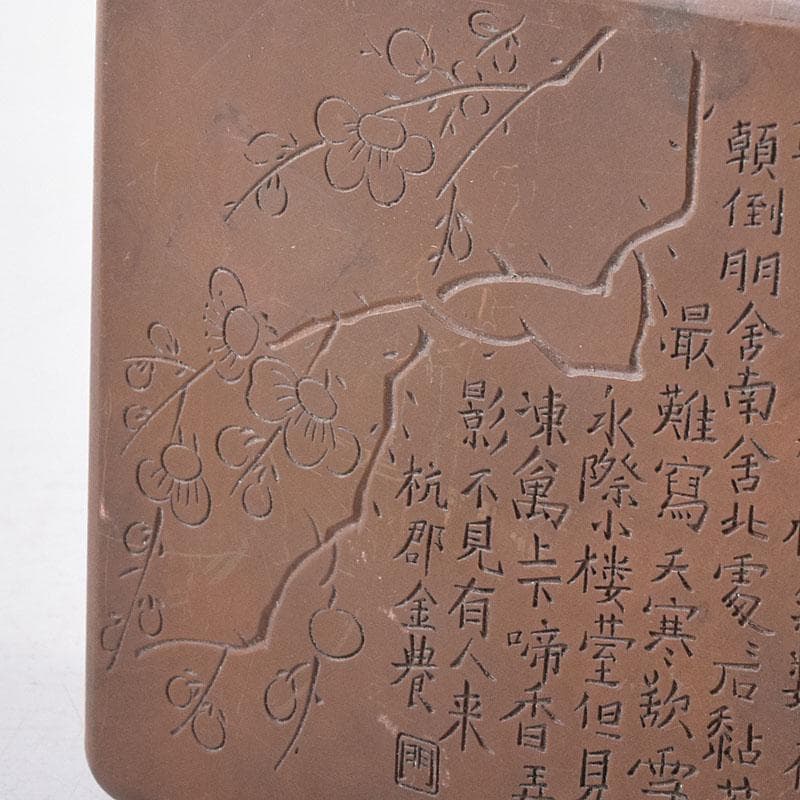 頼倒朋舍南舍北處黏
最難寫天寒欲雪
水際小楼臺但見
凍禽上下啼香弄
影不見有人来
杭郡金農